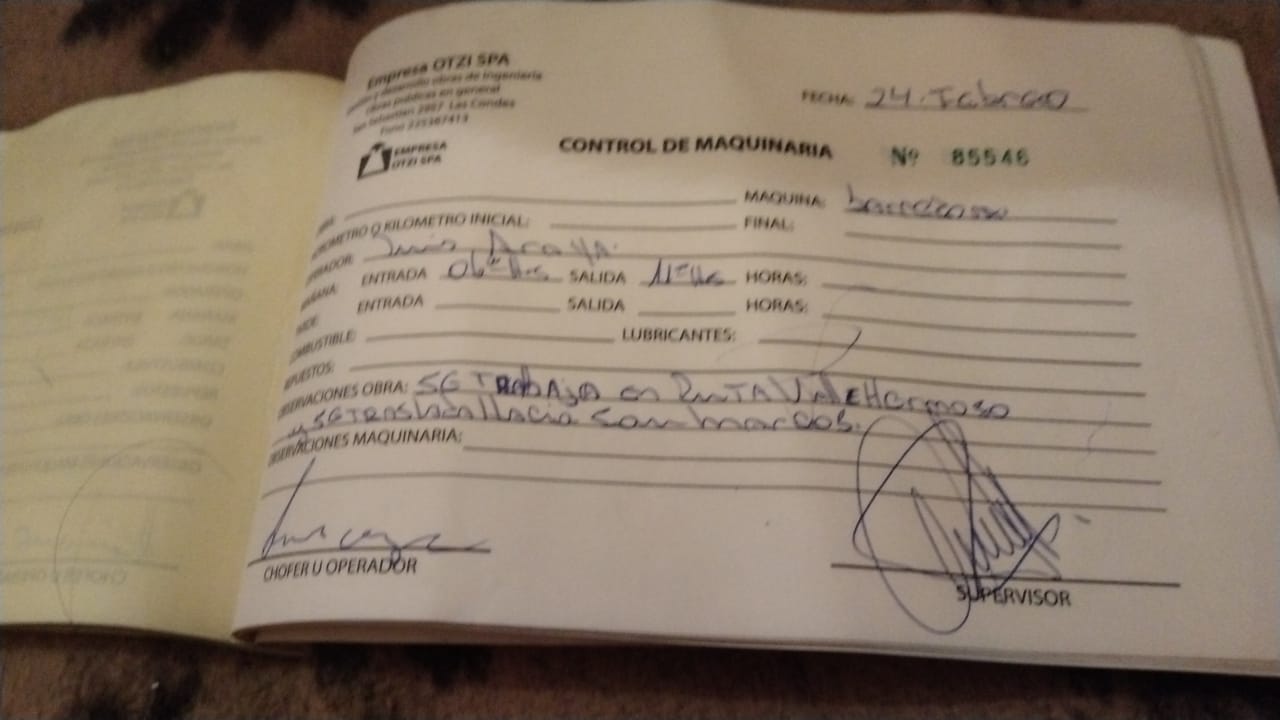 Empresa OTZI SPA
desarrollo obras de ingenieria
obras publicas en general
San Sebastian 2807 Las Condes
Fono 225367413
EMPRESA
OTZI SPA
FECHA: 24. Febrero
CONTROL DE MAQUINARIA Nº 85546
MAQUINA:
HOROMETRO O KILOMETRO INICIAL: FINAL:
OPERADOR: Luis Araya.
MAÑANA: ENTRADA 06 Hrs SALIDA 11 Hrs HORAS:
TARDE: ENTRADA SALIDA HORAS:
COMBUSTIBLE: LUBRICANTES:
REPUESTOS:
OBSERVACIONES OBRA: SG TRabAJA en RutA VAlleHermoso
y SGTRASlada Hacia San marcos.
OBSERVACIONES MAQUINARIA:
CHOFER U OPERADOR
SUPERVISOR